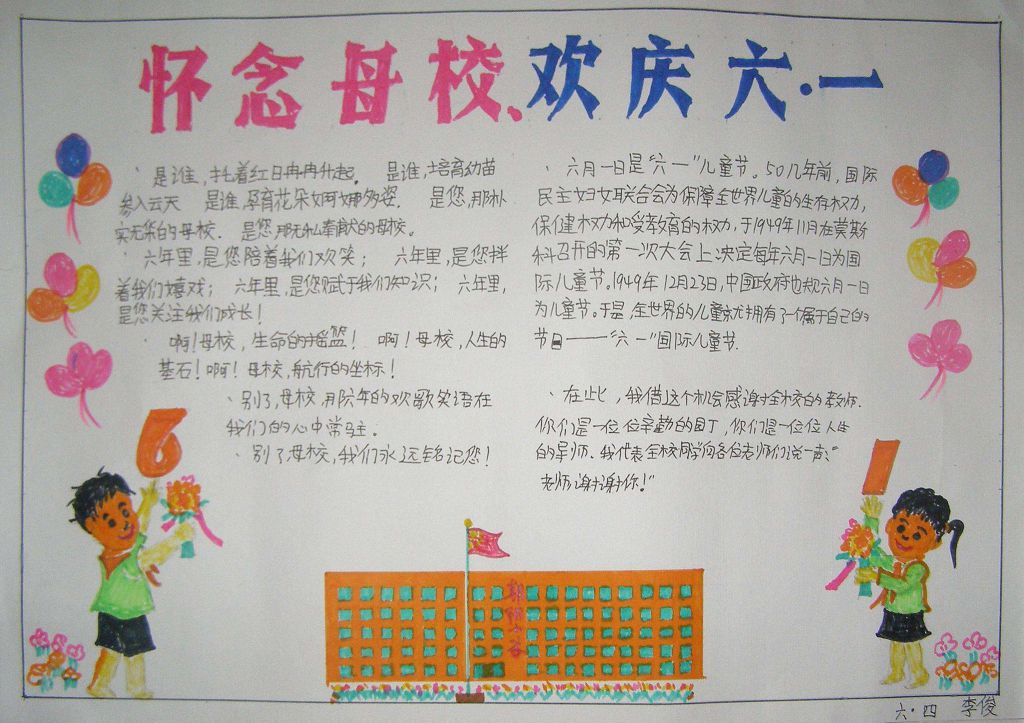 怀念母校、欢庆六·一
、是谁,托着红日冉冉升起。 是谁,培育幼苗
参入云天 是谁,孕育花朵婀娜多姿。 是您,那朴
实无华的母校. 是您那无私奉献的母校。
、六年里,是您陪着我们欢笑; 六年里,是您拌
着我们嬉戏; 六年里,是您赋于我们知识; 六年里,
是您关注我们成长!
、啊!母校,生命的摇篮! 啊!母校,人生的
基石!啊!母校,航行的坐标!
、别了,母校,用陈年的欢歌笑语在
我们的心中常驻。
、别了母校,我们永远铭记您!
、六月一日是“六一”儿童节。50几年前,国际
民主妇女联合会为保障全世界儿童的生存权力,
保健权力和受教育的权力,于1949年11月在莫斯
科召开的第一次大会上决定每年六月一日为国
际儿童节。1949年12月23日,中国政府也规六月一日
为儿童节。于是,全世界的儿童就拥有了一个属于自己的
节日——“六一”国际儿童节.
、在此,我借这个机会感谢全校的教师.
你们是一位位辛勤的园丁,你们是一位位人生
的导师.我代表全校同学向各位老师们说一声:“
老师,谢谢你!”
6
1
六·四 李俊